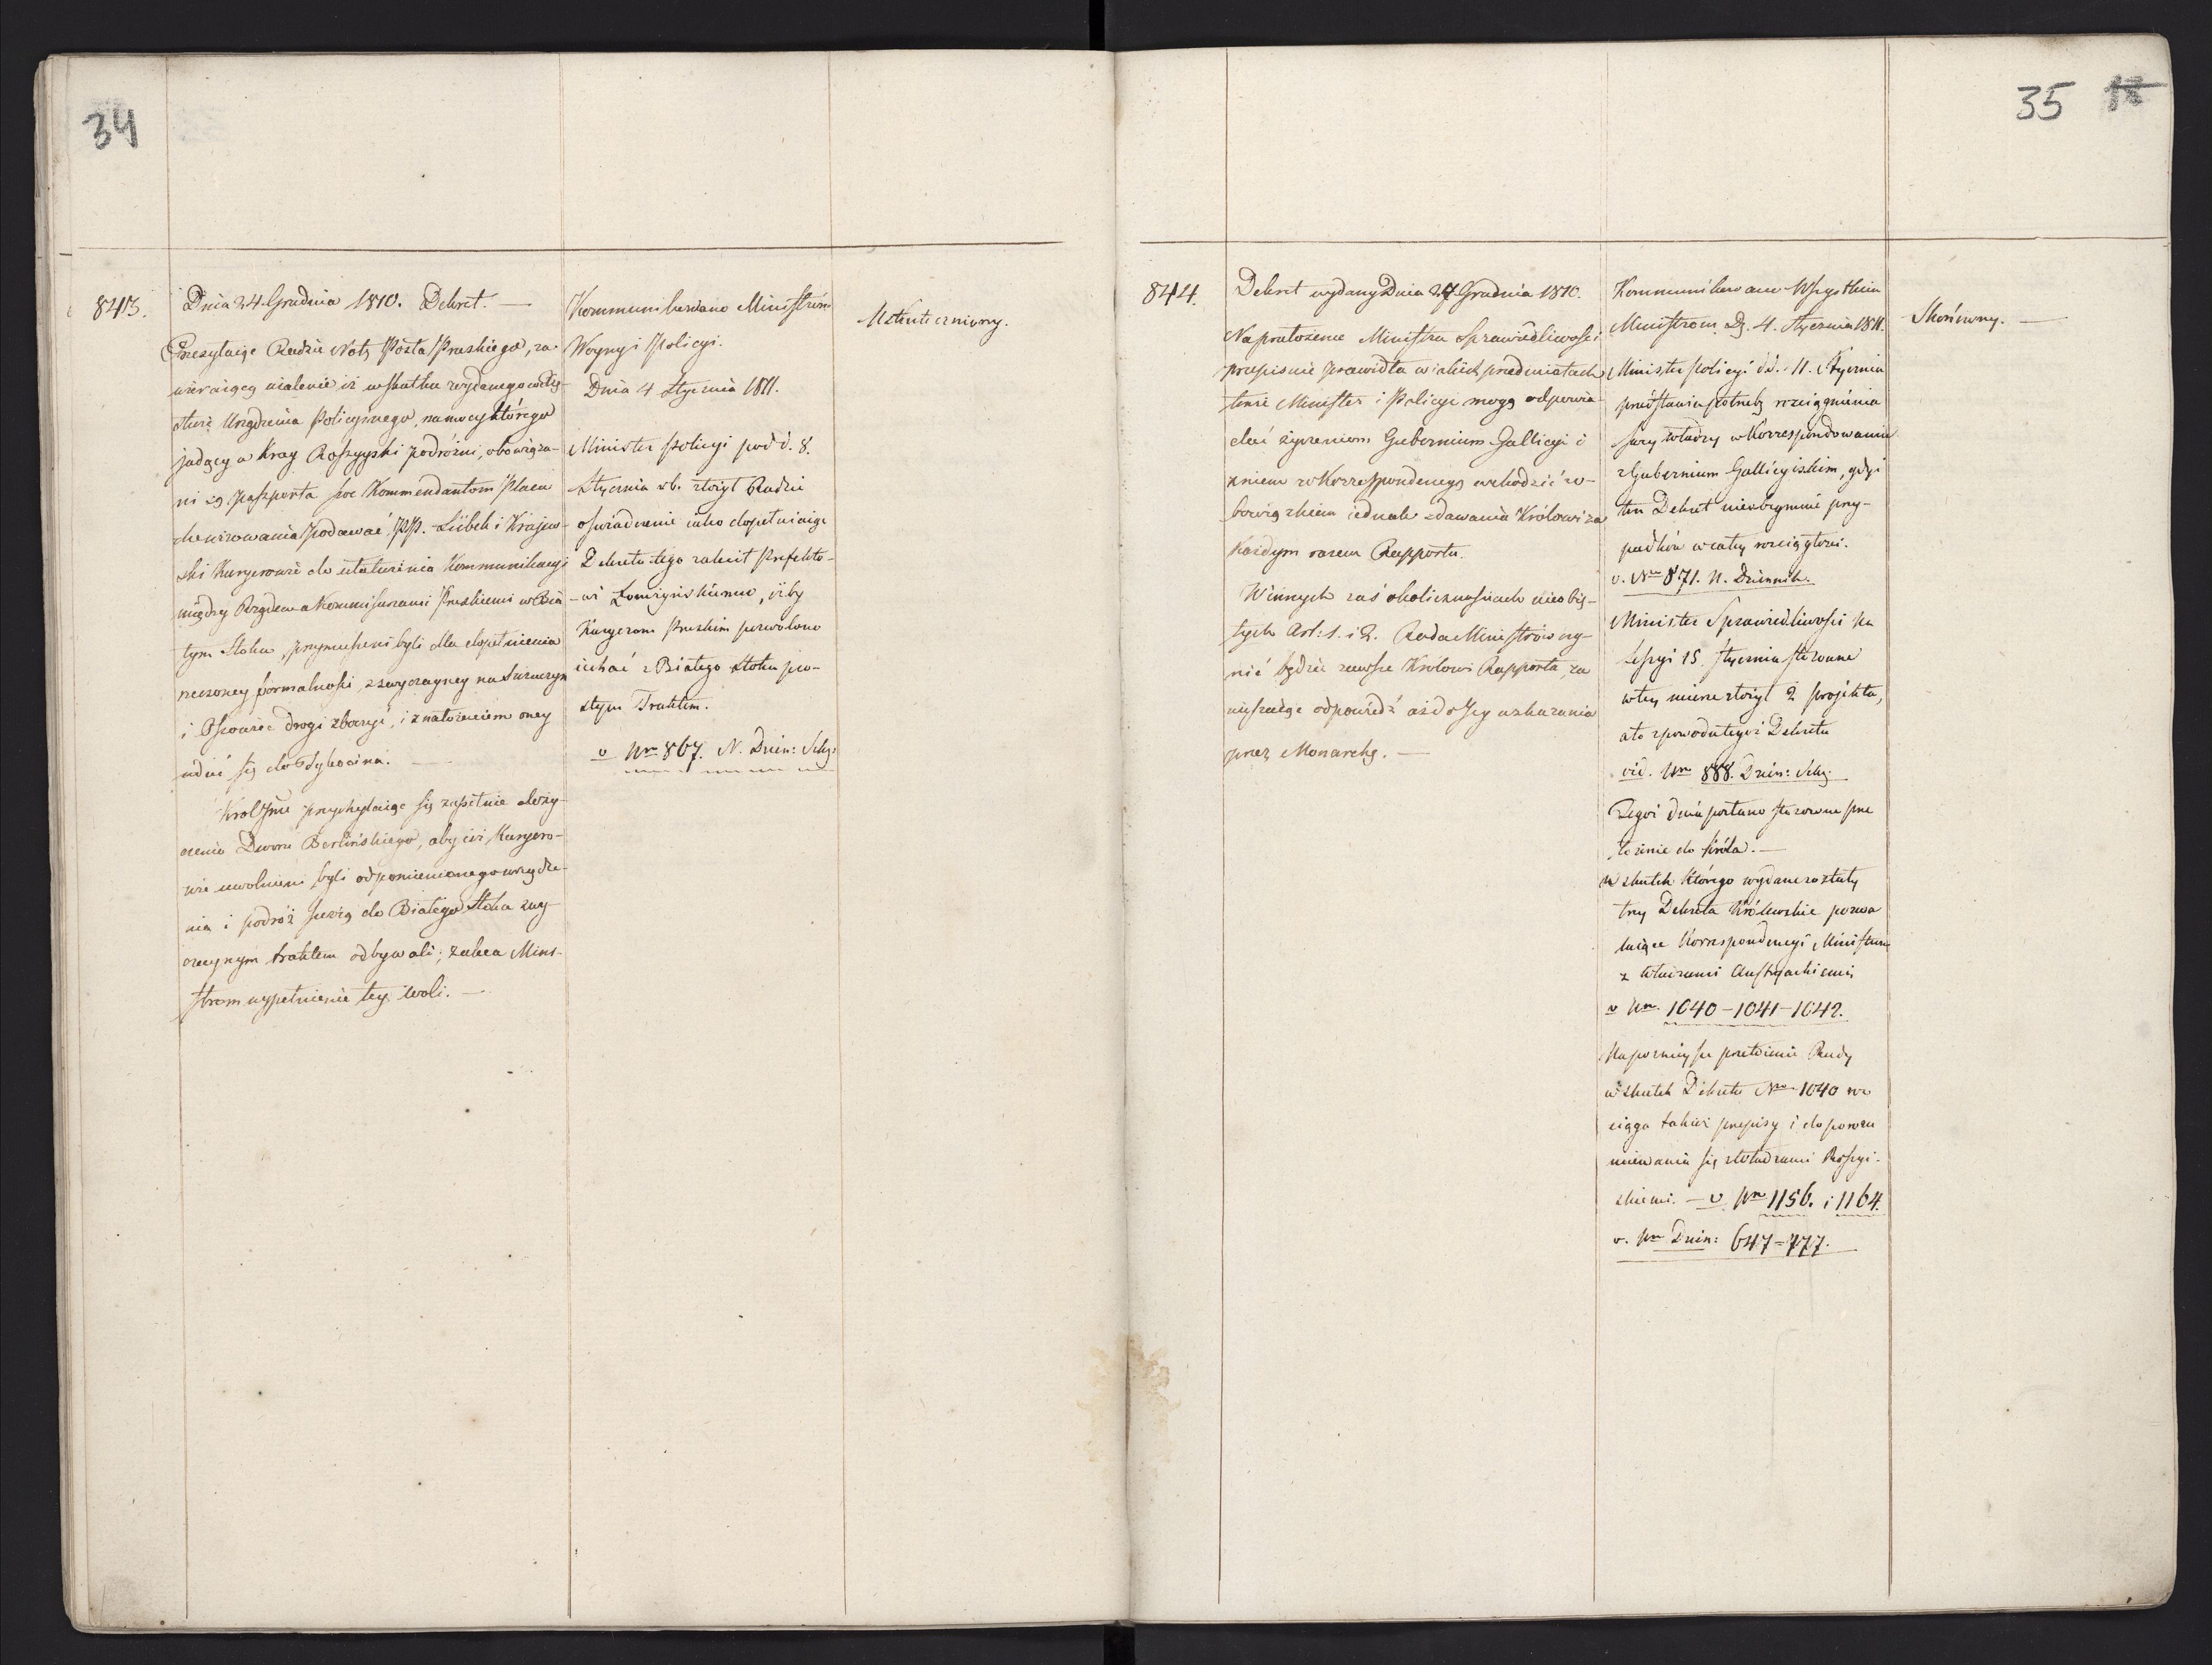 34
843.
Dnia 24. Grudnia 1810. Dekret. —
Przesyłaiąc Radzie Notę Posła Pruskiego, za-
wieraiącą użalenie iż w skutku wydanego
Urządzenia Policyinego, na mocy którego
jadący w Kray Rossyyski podróżni, obowiąza-
ni są Paszporta swe Kommendantom Placu
do wizowania podawać, PP. Liibek i Krajew-
ski Kuryerowie do ułatwienia Kommunikacyi
między Rządem a Kommissarzami Pruskiemi w Bia
łym Stoku, przymuszeni byli dla dopełnienia
rzeczoney formalności, zwyczayney na Szczuczyn
i Osowiec drogi zboczyć, i z nałożeniem oney
udać się do Tykocina. —
Król Jmć przychylaiąc się zupełnie do ży-
czenia Dworu Berlińskiego, aby ciż Kuryero-
wie uwolnieni byli od pomienionego urządze-
nia i podróż swoią do Białego Stoku zwy-
czaynym traktem odbywali; zaleca Mini-
strom wypełnienie tey woli. —
Kommunikowano Ministrom
Woyny i Policyi.
Dnia 4 Stycznia 1811.
Minister Policyi pod d. 8.
Stycznia r. b. złożył Radzie
oświadczenie iako dopełniaiąc
Dekretu tego zalecił Prefekto-
-wi Łomżyńskiemu, iżby
Kuryerom Pruskim pozwolono
iechać z Białego Stoku pro-
stym Traktem.
v Nro 867. N. Dzien: Sekr:
Uskuteczniony.
35 18
844.
Dekret wydany Dnia 27 Grudnia 1810.
Na przełożenie Ministra Sprawiedliwości
przepisuie prawidła w iakich przedmiotach
tenże Minister i Policyi mogą odpowia-
dać życzeniom Gubernium Gallicyi i
z niem w Korrespondencyą wchodzić z o-
bowiązkiem iednak zdawania Królowi za
każdym razem Rapportu.
W innych zaś okolicznościach nieobię-
tych Art: 1. i 2. Rada Ministrów czy-
nić będzie zawsze Królowi Rapporta, za
wieszaiąc odpowiedź aż do Jey wskazania
przez Monarchę. —
Kommunikowano Wszystkim
Ministrom D. 4. Stycznia 1811.
Minister Policyi d. 11. Stycznia
przedstawia potrzebę rozciągnienia
swey władzy w Korrespondowaniu
z Gubernium Gallicyiskim, gdyż
ten Dekret nieobeymuie przy-
padków w całey rozciągłości.
v. Nro 871. N. Dziennik.
Minister Sprawiedliwości na
Sessyi 15. Stycznia stosowne
w tey mierze złożył 2 projekta,
a to z powodu tegoż Dekretu
vid. Nro 888. Dzien: Sekr:
Tegoż dnia posłano stosowne prze
łożenie do Króla. —
W skutek którego wydane zostały
trzy Dekreta Królewskie pozwa
laiące Korrespondencyi Ministrom
z Władzami Austryackiemi
v Nro 1040 – 1041 – 1042.
Na poźnieysze przełożenie Rady
w skutek Dekretu Nro 1040 roz
ciąga takież przepisy i do porozu
miewania się z Władzami Rossyi-
skiemi. — v Nro 1156. i 1164.
v. Nro Dzien: 647 – 777.
Skończony. —